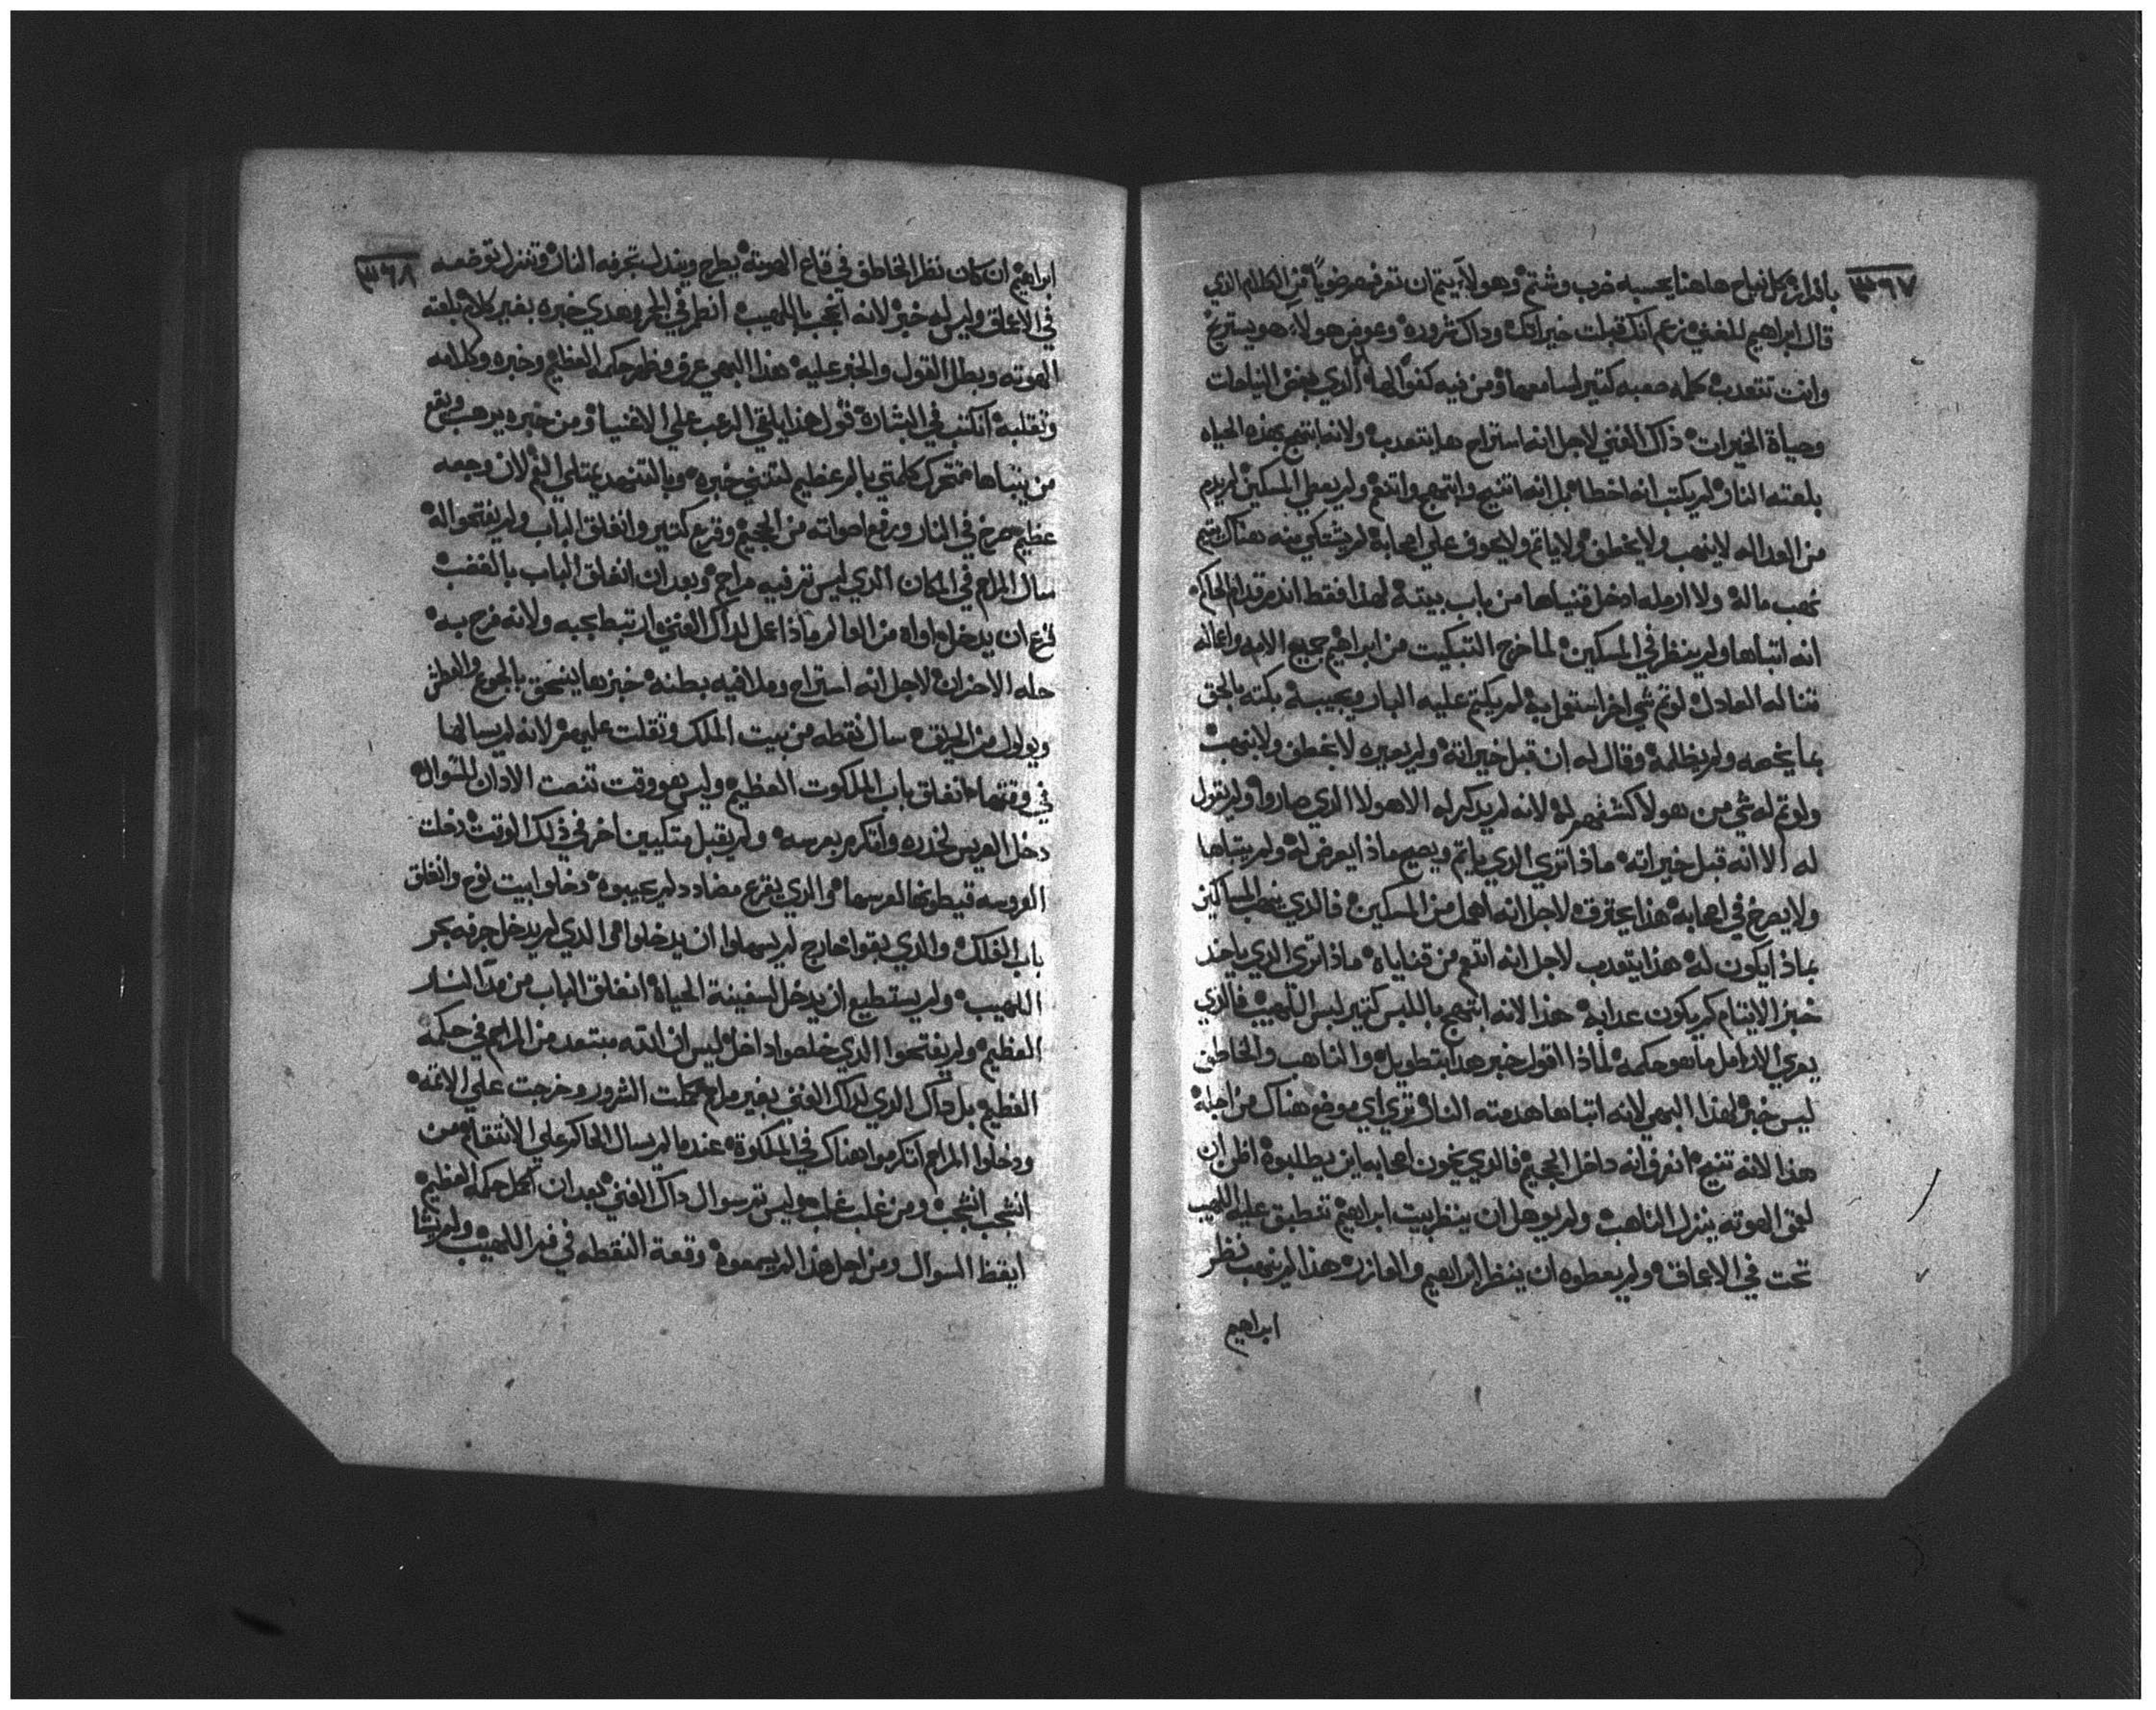 ٣٦٧
بافراز كل نياح هاهنا يحسبه ضرب وشتم وهولاء يتم ان تعرفهم ضويا من الكلام الذي
قال ابراهيم للغني نزعم انك قبلت خيراتك وداك شروره وعوض هولاء هو يستريح
وانت تتعدب كله صعبه كتير لسامعها ومن فيه كفوا لها الذي يبغض النياحات
وحياة الخيرات ذاك الغني لاجل انه استراح ها يتعدب ولانه ابتهج بهذه الحياه
بلعته النار لم يكتب انه اخطا بل انه اتنيح وابتهج واتنعم ولم يعطي المسكين لم يدم
من العداله لا ينهب ولا يخطف ولا ياتم ولا يخوف علي اصحابه لم يشتكي منه هناك يتيم
نهب ماله ولا ارمله ادخل قنياها من باب بيته لهذا فقط اندم قدام الحاكم
انه اتباها ولم ينظر في المسكين لما خرج التبكيت من ابراهيم جميع الامه واعماله
تناله العادل لو تم شي اخر استعمل به لم يكتم عليه البار ويجيبه بكته بالحق
بما يخصه ولم يظلمه وقال له ان قبل خيراته ولم يعيره لا بخطف ولا بنهب
ولو تم له شي من هولا كشفهم له لانه لم يدكر له الا هولا الذي صاروا ولم يقول
له الا انه قبل خيراته ماذا تري الذي ياتم ويصيح ماذا يعرض له ولم يتباها
ولا يصرخ في اصحابه هذا يحترق لاجل انه اهمل من المسكين فالذي ينهب المساكين
بماذا يكون له هذا يتعدب لاجل انه اتنعم من قناياه ماذا تري الذي ياخد
خبز الايتام كم يكون عدابه هذا لانه ابتهج باللبس كتير لبس اللهيب فالذي
يعري الارامل ما هو حكمه لماذا اقول خبر هذا بتطويل والناهب والخاطف
ليس خبر لهذا البهي لانه اتباها هدمته النار تري اي موضع هناك من اجله
هذا لانه تنيح انعرف انه داخل الجحيم فالذي يخون اصحابه اين يطلبوه اظن ان
لعمق الهوته ينزل الناهب ولم يوهل ان ينظر بيت ابراهيم تنطبق عليه اللهيب
تحت في الاعماق ولم يعطوه ان ينظر ابراهيم والعازر هذا لم ينهب نظر
ابراهيم
٣٦٨
ابراهيم ان كان نظر الخاطف في قاع الهوته يطرح ويندل تجرفه النار وتنزل توضعه
في الاعماق وليس له خبر لانه انحجب باللهيب انطمر في الجمر وهدي خبره بغير كلام بلعته
الهوته وبطل القول والخبر عليه هذا البهي عرف وظهر حكمه العظيم وخبره وكلامه
وتقلبه انكتب في البشارة قول هذا يلقي الرعب علي الاغنيا ومن خبره يرهب ويقع
من يتباها تتحرك كلمتي بالم عظيم لتدني خبره وبالتنهد يمتلي الفم لان وجعه
عظيم صرخ في النار ورفع اصواته من الجحيم وقرع كتير وانغلق الباب ولم يفتحوا له
سال المراحم في المكان الذي ليس تم فيه مراحم وبعد ان انغلق الباب بالغضب
قرع ان يدخل اواه من العالم ماذا عمل لداك الغني ارتبط بحبه ولانه فرح به
حله الاحزان لاجل انه استراح وملا فيه بطنه خبزها ينسحق بالجوع والعطش
ويولول من الحريق سال نقطه من بيت الملك وتقلت عليهم لانه لم يسالها
في وقتها انغلق باب الملكوت العظيم وليس هو وقت تنصت الادان للسوال
دخل العريس لخدره وانكرم بعرسه ولم يقبل متكيين اخر في ذلك الوقت دخلت
العروسه قيطونها لعرسها والذي يقرع مضادد لم يجيبوه دخلوا بيت نوح وانغلق
باب الفلك والذي بقوا خارج لم يسهلوا ان يدخلوا الذي لم يدخل جرفه بحر
اللهيب ولم يستطيع ان يدخل لسفينة الحياة انغلق الباب من قدام النسار
العظيم ولم يفتحوا الذي خلصوا داخل ليس ان الله مبتعد من المراحم في حكمه
العظيم بل داك الذي لداك الغني بغير مراحم كملت الشرور وخرجت علي الاتمه
ودخلوا المراحم انكرموا هناك في الملكوة عندما لم يسال الحاكم علي الانتقام من
انشجب انشجب ومن غلب غلب وليس تم سوال داك الغني بعد ان كمل حكمه العظيم
ايقظ السوال ومن اجل هذا لم يسمعوه وقعة النقطه في فم اللهيب ولم يشا